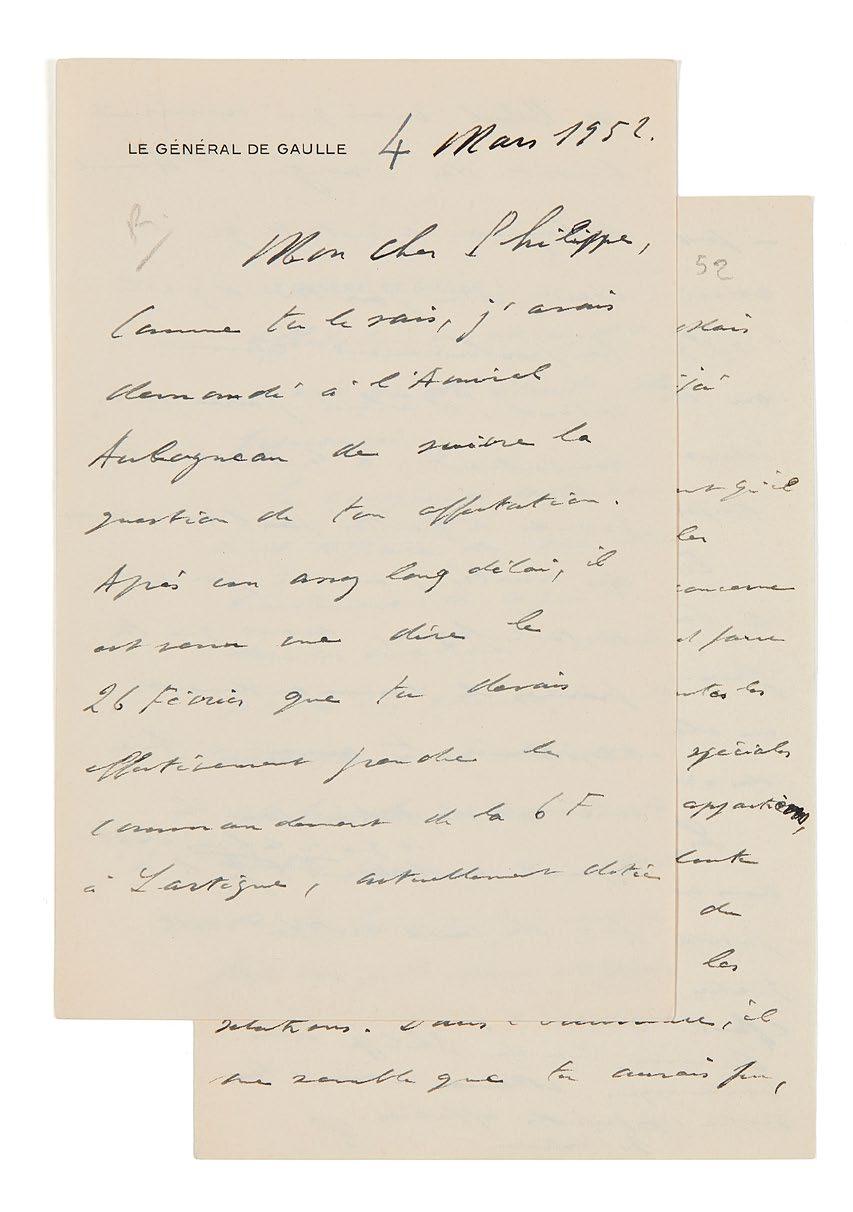 LE GÉNÉRAL DE GAULLE 4 Mars 1952.
Mon cher Philippe,
Comme tu le sais, j'avais
demandé à l'Amiral
Auboyneau de suivre la
question de ton affectation.
Après un assez long délai, il
est venu me dire le
26 Février que tu devais
effectivement prendre le
commandement de la 6 F
à Lartigue, actuellement dotée
52
Mais
qu'il
les
concerne
spéciales
du
les
relations. Dans l', il
me semble que tu aurais pu,